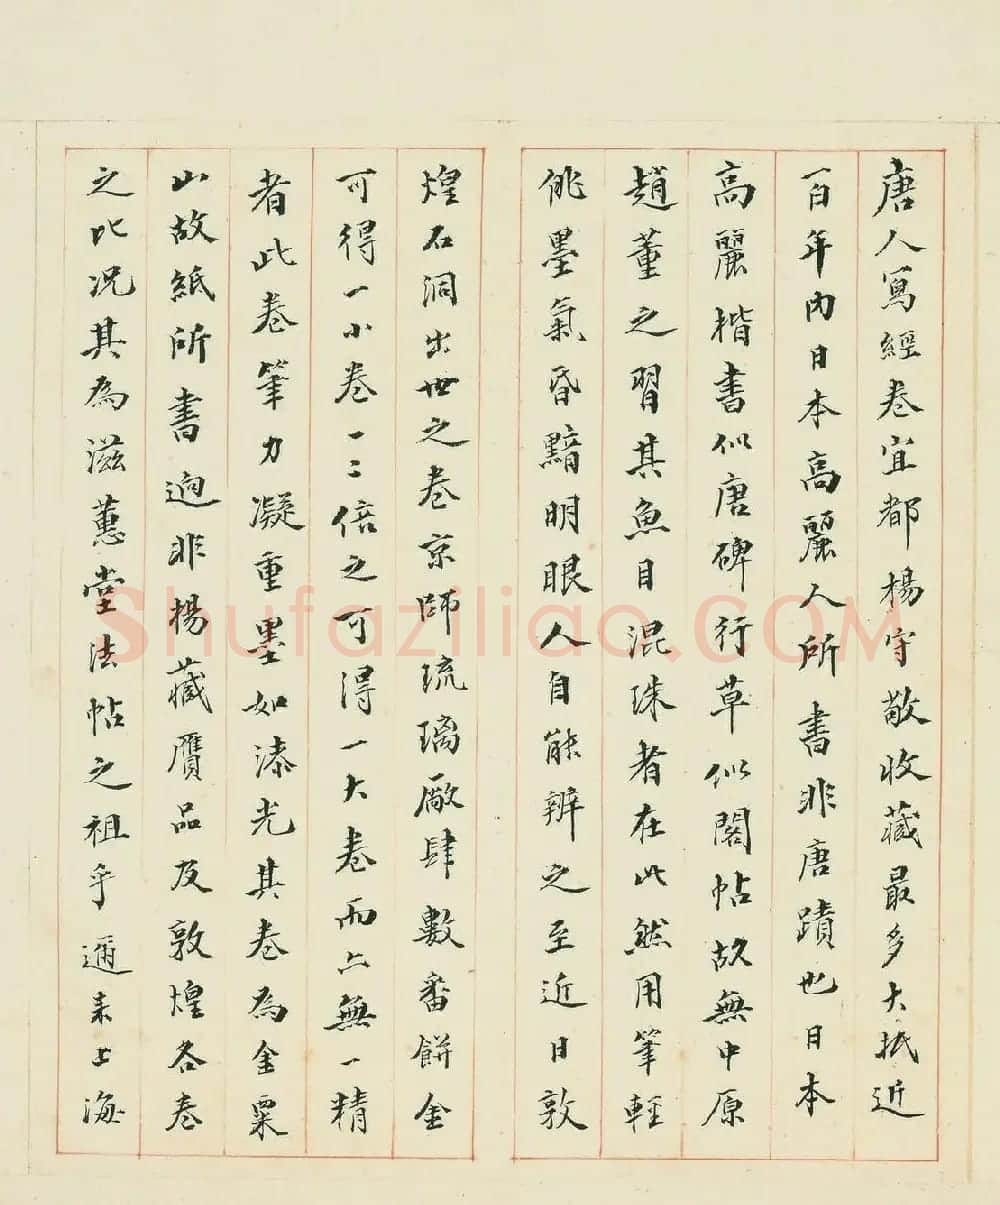 唐人寫經卷宜都楊守敬收藏最多大抵近
百年內日本高麗人所書非唐蹟也日本
高麗楷書似唐碑行草似閣帖故無中原
趙董之習其魚目混珠者在此然用筆輕
佻墨氣昏黯明眼人自能辨之至近日敦
煌石洞出世之卷京師琉璃廠肆數番餅金
可得一小卷一二倍之可得一大卷而亦無一精
者此卷筆力凝重墨如漆光其卷為金粟
山故紙所書迥非楊藏贋品及敦煌各卷
之比況其為滋蕙堂法帖之祖乎邇來上海
Shufaziliao.COM